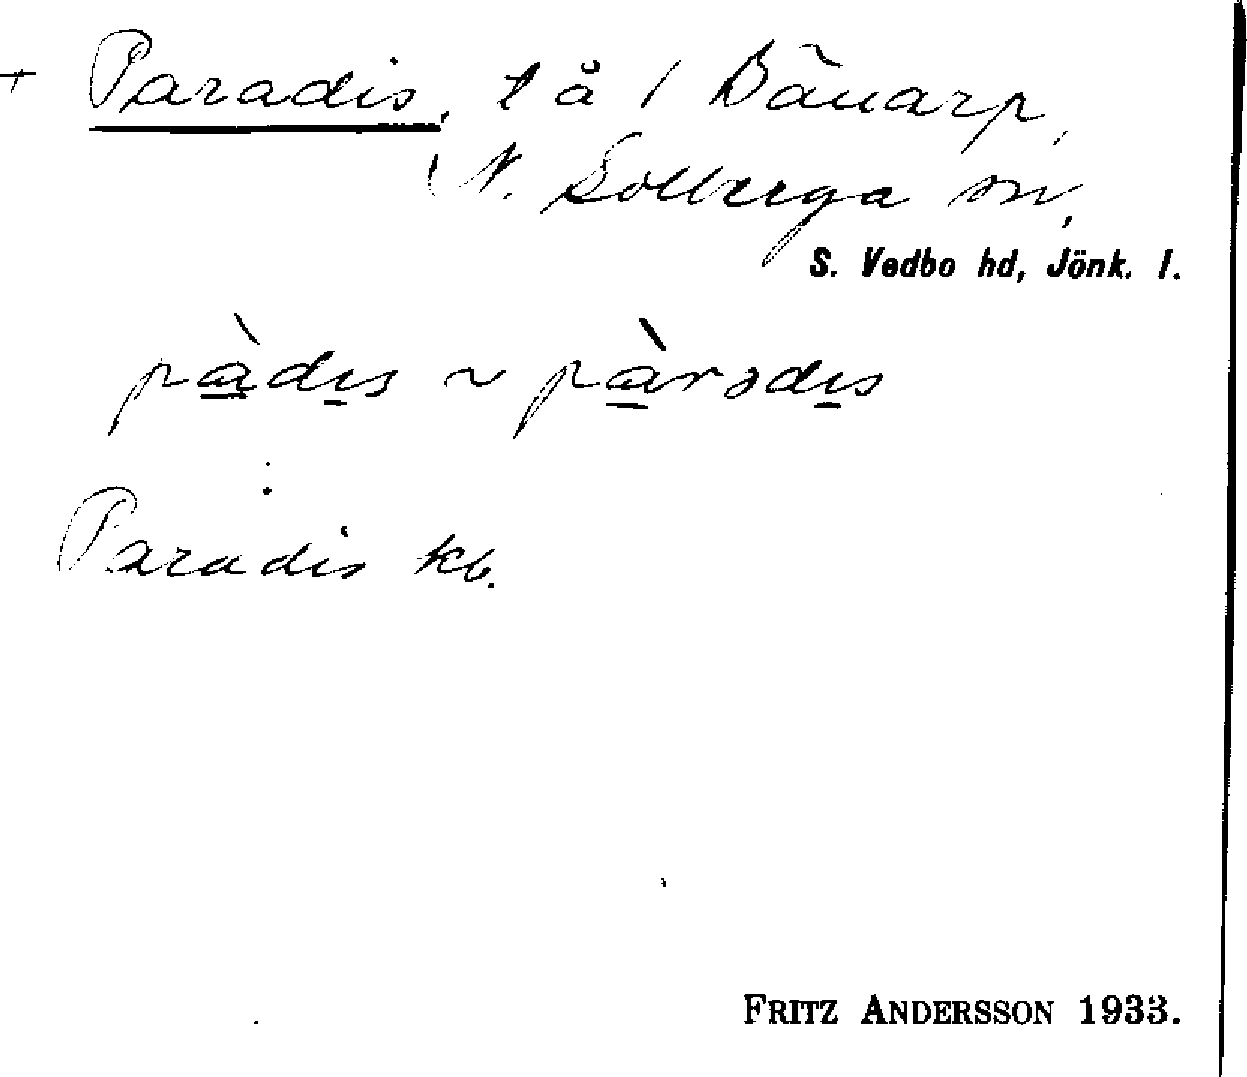 + Paradis, t å / Bänarp,
N. Solberga sn,
S. Vedbo hd, Jönk. l.
pàdis ~ pàrədis
Paradis kb.
FRITZ ANDERSSON 1933.